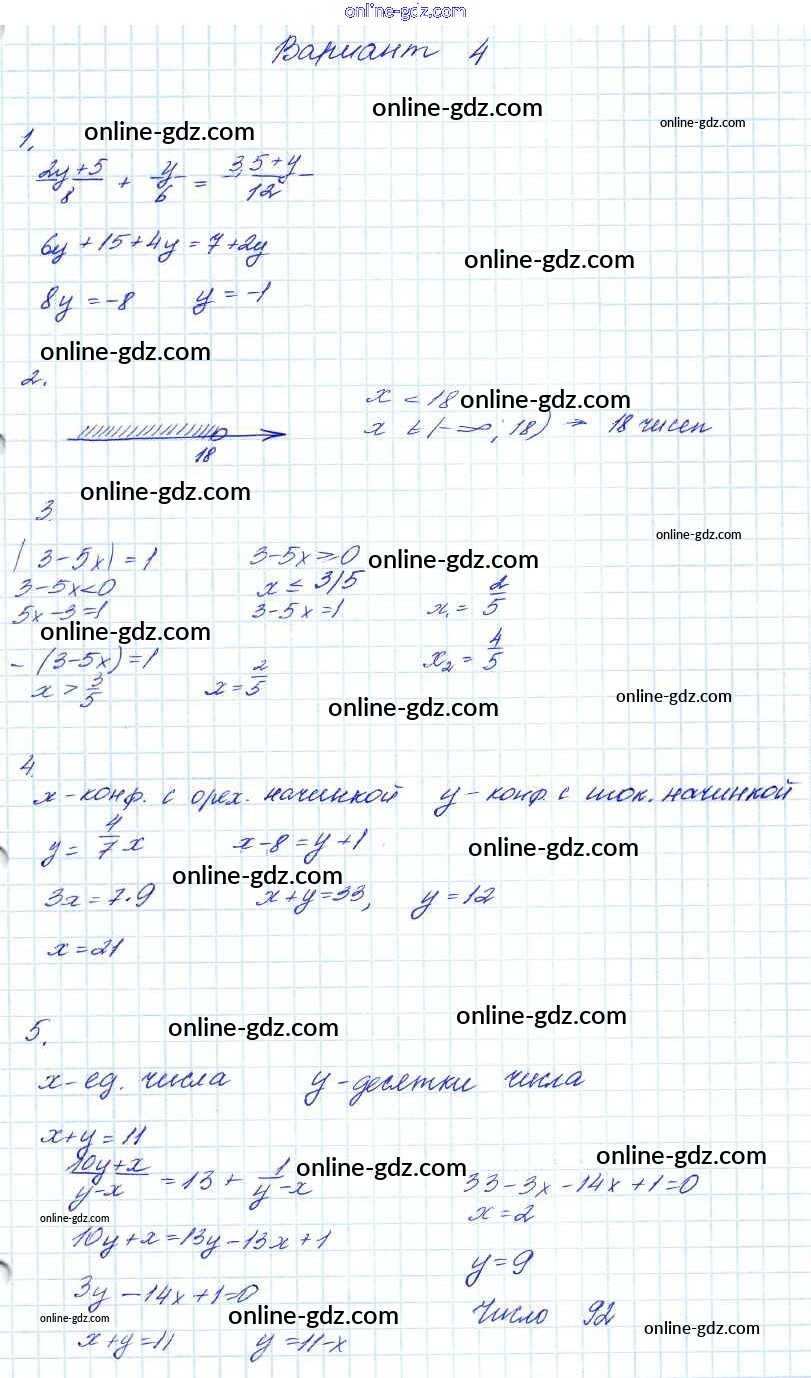 online-gdz.com
Вариант 4
online-gdz.com
online-gdz.com
online-gdz.com
1.
(2y+5)/8 + y/6 = (3,5+y)/12
6y+15+4y=7+2y
online-gdz.com
8y=-8 y=-1
online-gdz.com
2.
x<18
online-gdz.com
x ∈ (-∞; 18) → 18 чисел
18
online-gdz.com
3.
online-gdz.com
|3-5x|=1 3-5x≥0
online-gdz.com
3-5x<0 x≤3/5 x₁=2/5
5x-3=1 3-5x=1
online-gdz.com
-(3-5x)=1 x₂=4/5
x>3/5 x=2/5
online-gdz.com
online-gdz.com
4.
x-конф. с орех. начинкой y-конф. с шок. начинкой
y=4/7 x x-8=y+1
online-gdz.com
online-gdz.com
3x=7·9 x+y=33, y=12
x=21
5.
online-gdz.com
online-gdz.com
x-ед. числа y-десятки числа
x+y=11
(10y+x)/(y-x) = 13 + 1/(y-x)
online-gdz.com
online-gdz.com
33-3x-14x+1=0
x=2
online-gdz.com
10y+x=13y-13x+1
y=9
3y-14x+1=0
Число 92
online-gdz.com
online-gdz.com
online-gdz.com
x+y=11 y=11-x